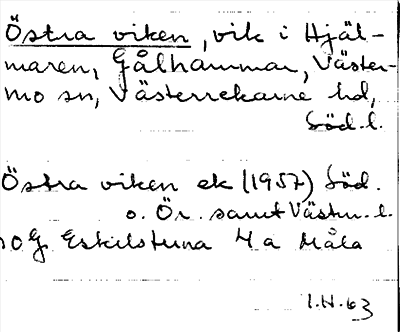 Östra viken, vik i Hjäl-
maren, Gålhammar, Väster-
mo sn, Västerrekarne hd,
Söd. l.
Östra viken ek (1957) Söd.
o. Ör. samt Västm. l.
SOG Eskilstuna 4 a Måla
1.H.63